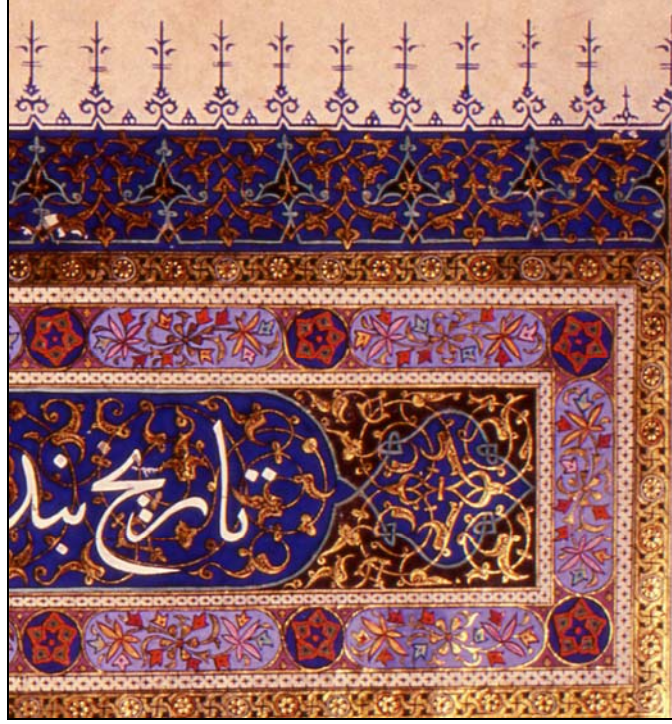 تاریخ بند